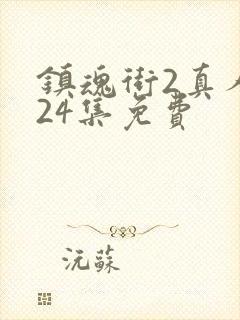 鎮魂街2真人
24集免費
沅蘇